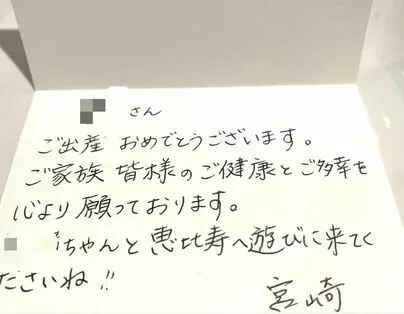 さん
ご出産 おめでとうございます。
ご家族 皆様の ご健康と ご多幸を
心より 願っております。
ちゃんと 恵比寿へ遊びに来てく
ださいね!!
宮崎